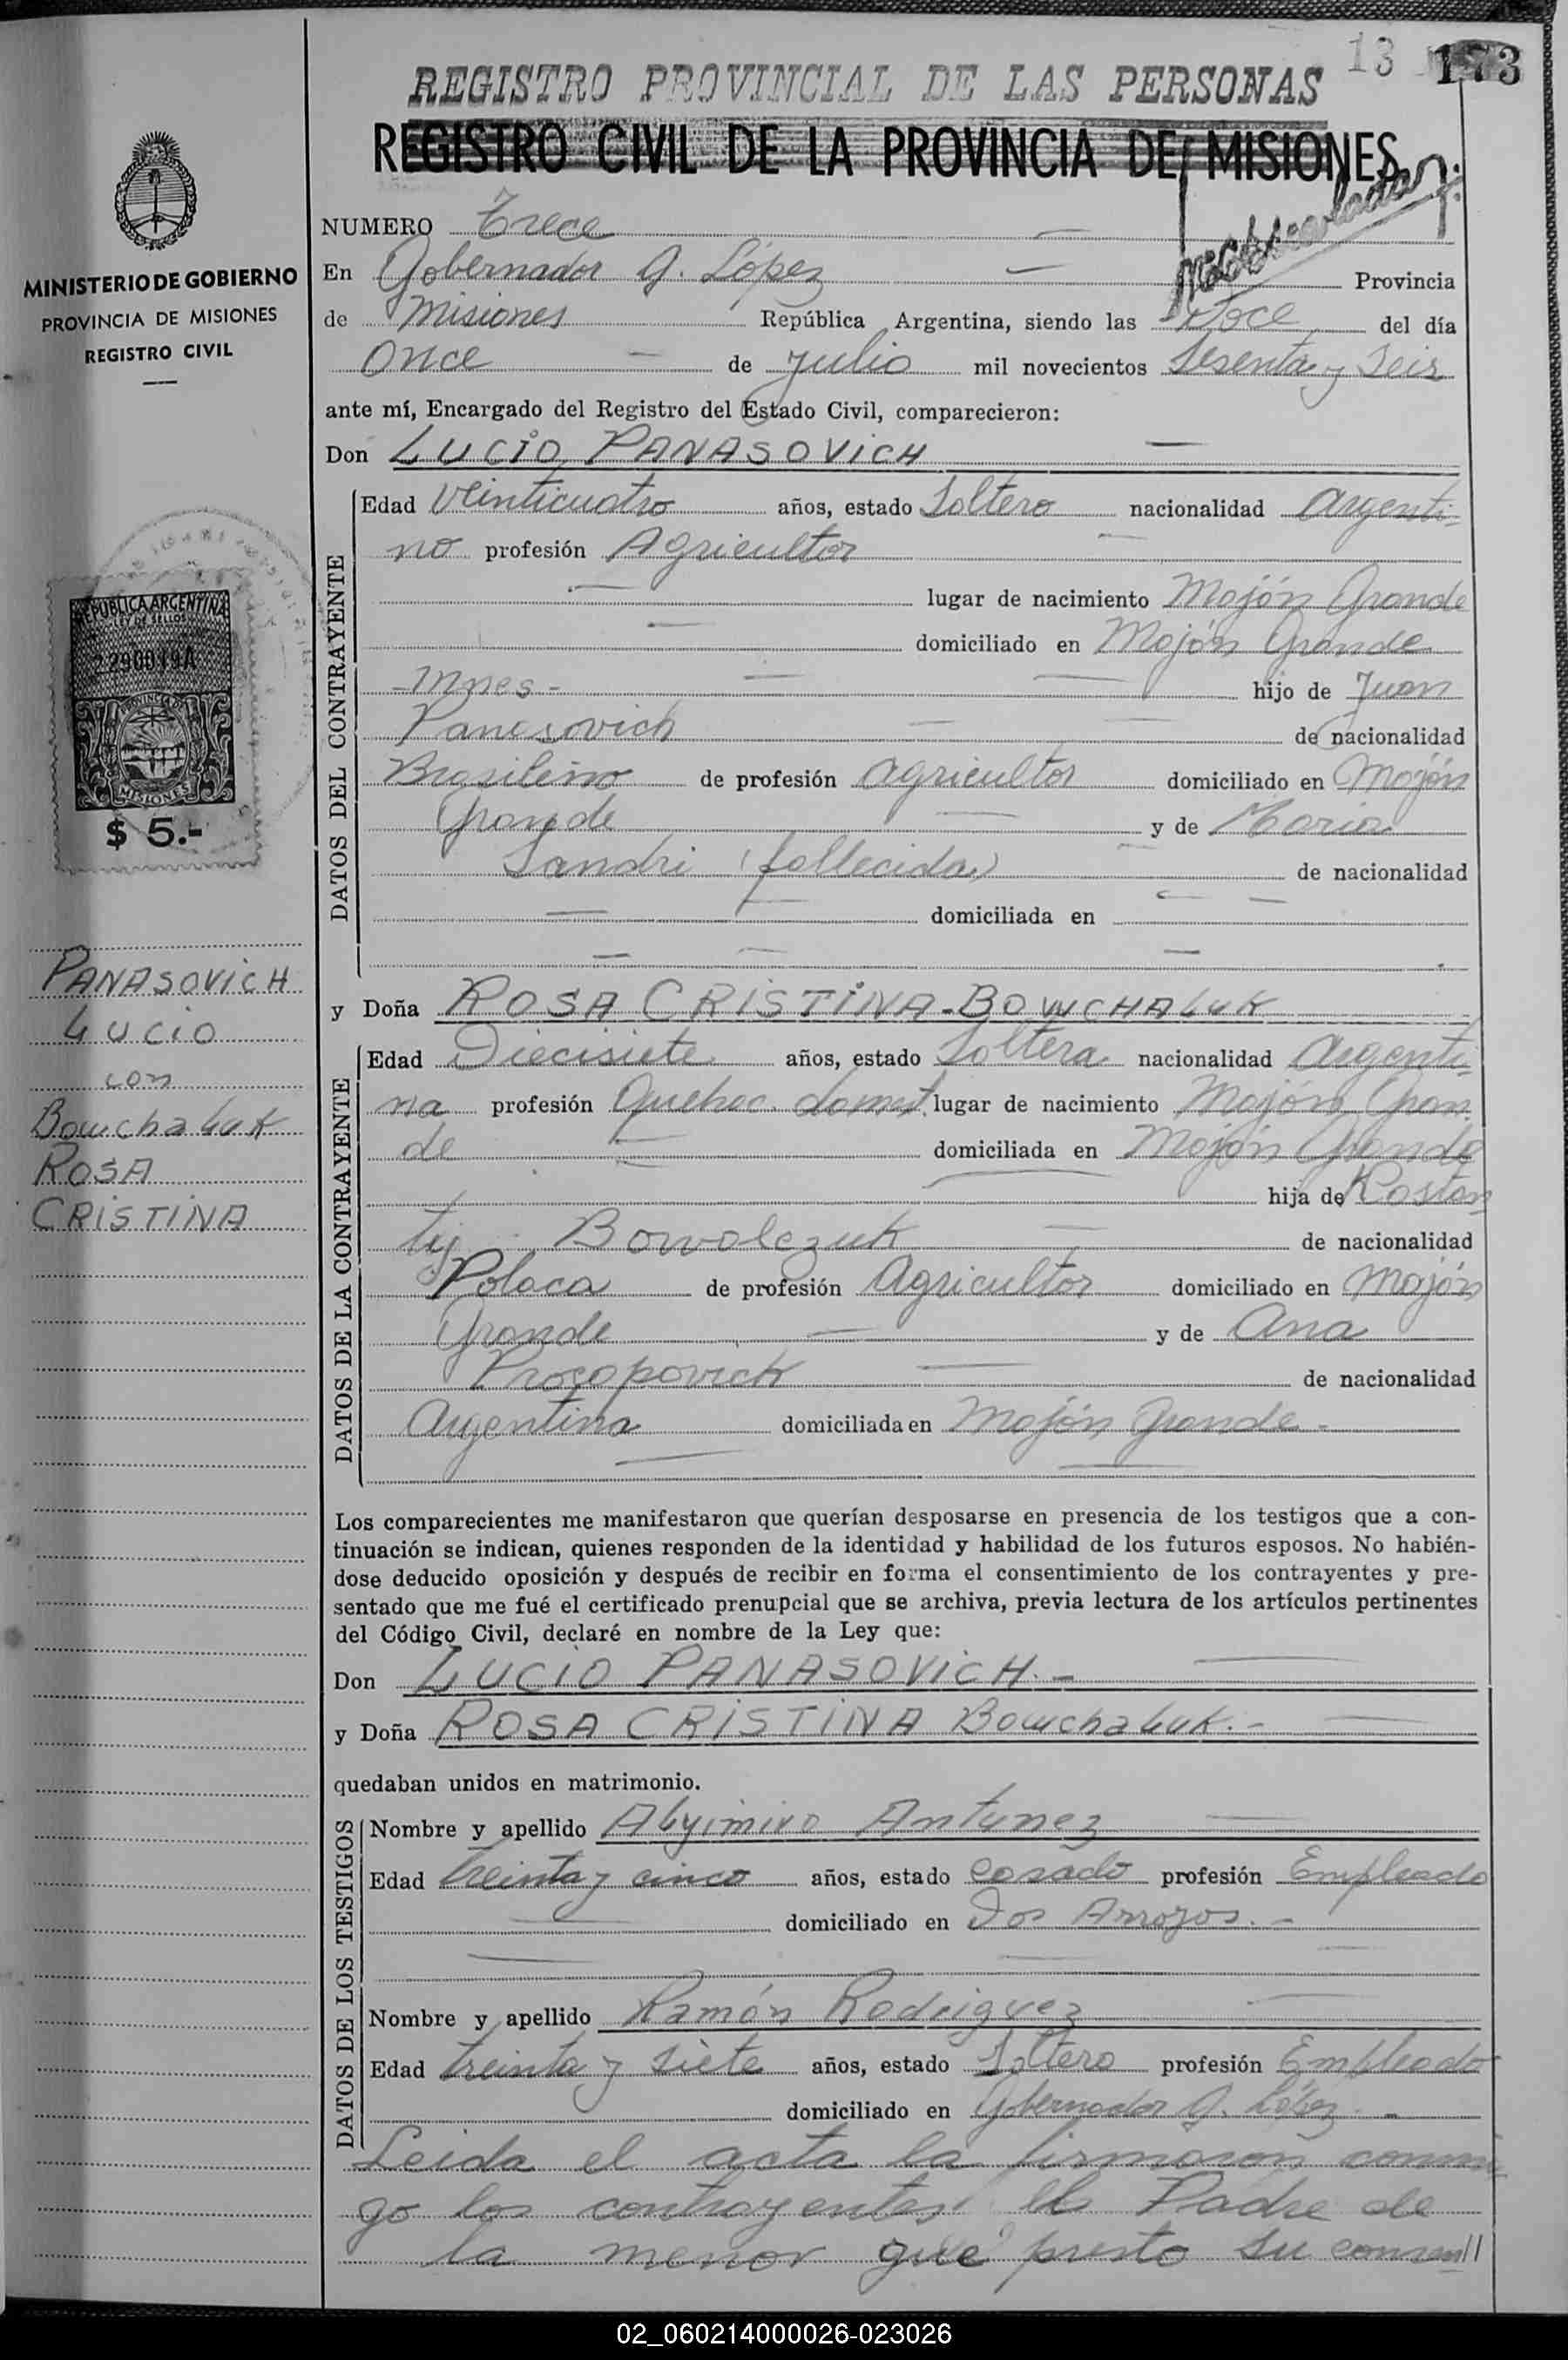 13 173
REGISTRO PROVINCIAL DE LAS PERSONAS
REGISTRO CIVIL DE LA PROVINCIA DE MISIONES
MINISTERIO DE GOBIERNO
PROVINCIA DE MISIONES
REGISTRO CIVIL
REPUBLICA ARGENTINA
LEY DE SELLOS
MISIONES
$ 5.-
PANASOVICH
LUCIO
con
Bowchaluk
ROSA
CRISTINA
NUMERO Trece
En Gobernador J. López Provincia
de Misiones República Argentina, siendo las Doce del día
Once de Julio mil novecientos Sesenta y Seis
ante mí, Encargado del Registro del Estado Civil, comparecieron:
Don LUCIO PANASOVICH
DATOS DEL CONTRAYENTE
Edad Veinticuatro años, estado Soltero nacionalidad Argenti-
no profesión Agricultor
lugar de nacimiento Mojón Grande
domiciliado en Mojón Grande
-Mnes- hijo de Juan
Panasovich de nacionalidad
Brasileño de profesión Agricultor domiciliado en Mojón
Grande y de Maria
Sandri (fallecida) de nacionalidad
domiciliada en
y Doña ROSA CRISTINA-BOWCHALUK
DATOS DE LA CONTRAYENTE
Edad Diecisiete años, estado Soltera nacionalidad Argenti-
na profesión Quehac. domest. lugar de nacimiento Mojón Gran-
de domiciliada en Mojón Grande
hija de Kostan
ty Bowalczuk de nacionalidad
Polaca de profesión Agricultor domiciliado en Mojón
Grande y de Ana
Prosopovich de nacionalidad
Argentina domiciliada en Mojón Grande.-
Los comparecientes me manifestaron que querían desposarse en presencia de los testigos que a con-
tinuación se indican, quienes responden de la identidad y habilidad de los futuros esposos. No habién-
dose deducido oposición y después de recibir en forma el consentimiento de los contrayentes y pre-
sentado que me fué el certificado prenupcial que se archiva, previa lectura de los artículos pertinentes
del Código Civil, declaré en nombre de la Ley que:
Don LUCIO PANASOVICH.-
y Doña ROSA CRISTINA Bowchaluk.-
quedaban unidos en matrimonio.
DATOS DE LOS TESTIGOS
Nombre y apellido Antunez
Edad Treinta y cinco años, estado Casado profesión Empleado
domiciliado en Dos Arroyos.-
Nombre y apellido Ramón Rodriguez
Edad treinta y siete años, estado Soltero profesión Empleado
domiciliado en Gobernador J. López.-
Leida el acta la firmaron conmi
go los contrayentes el Padre de
la menor que presto su consen//
02_060214000026-023026